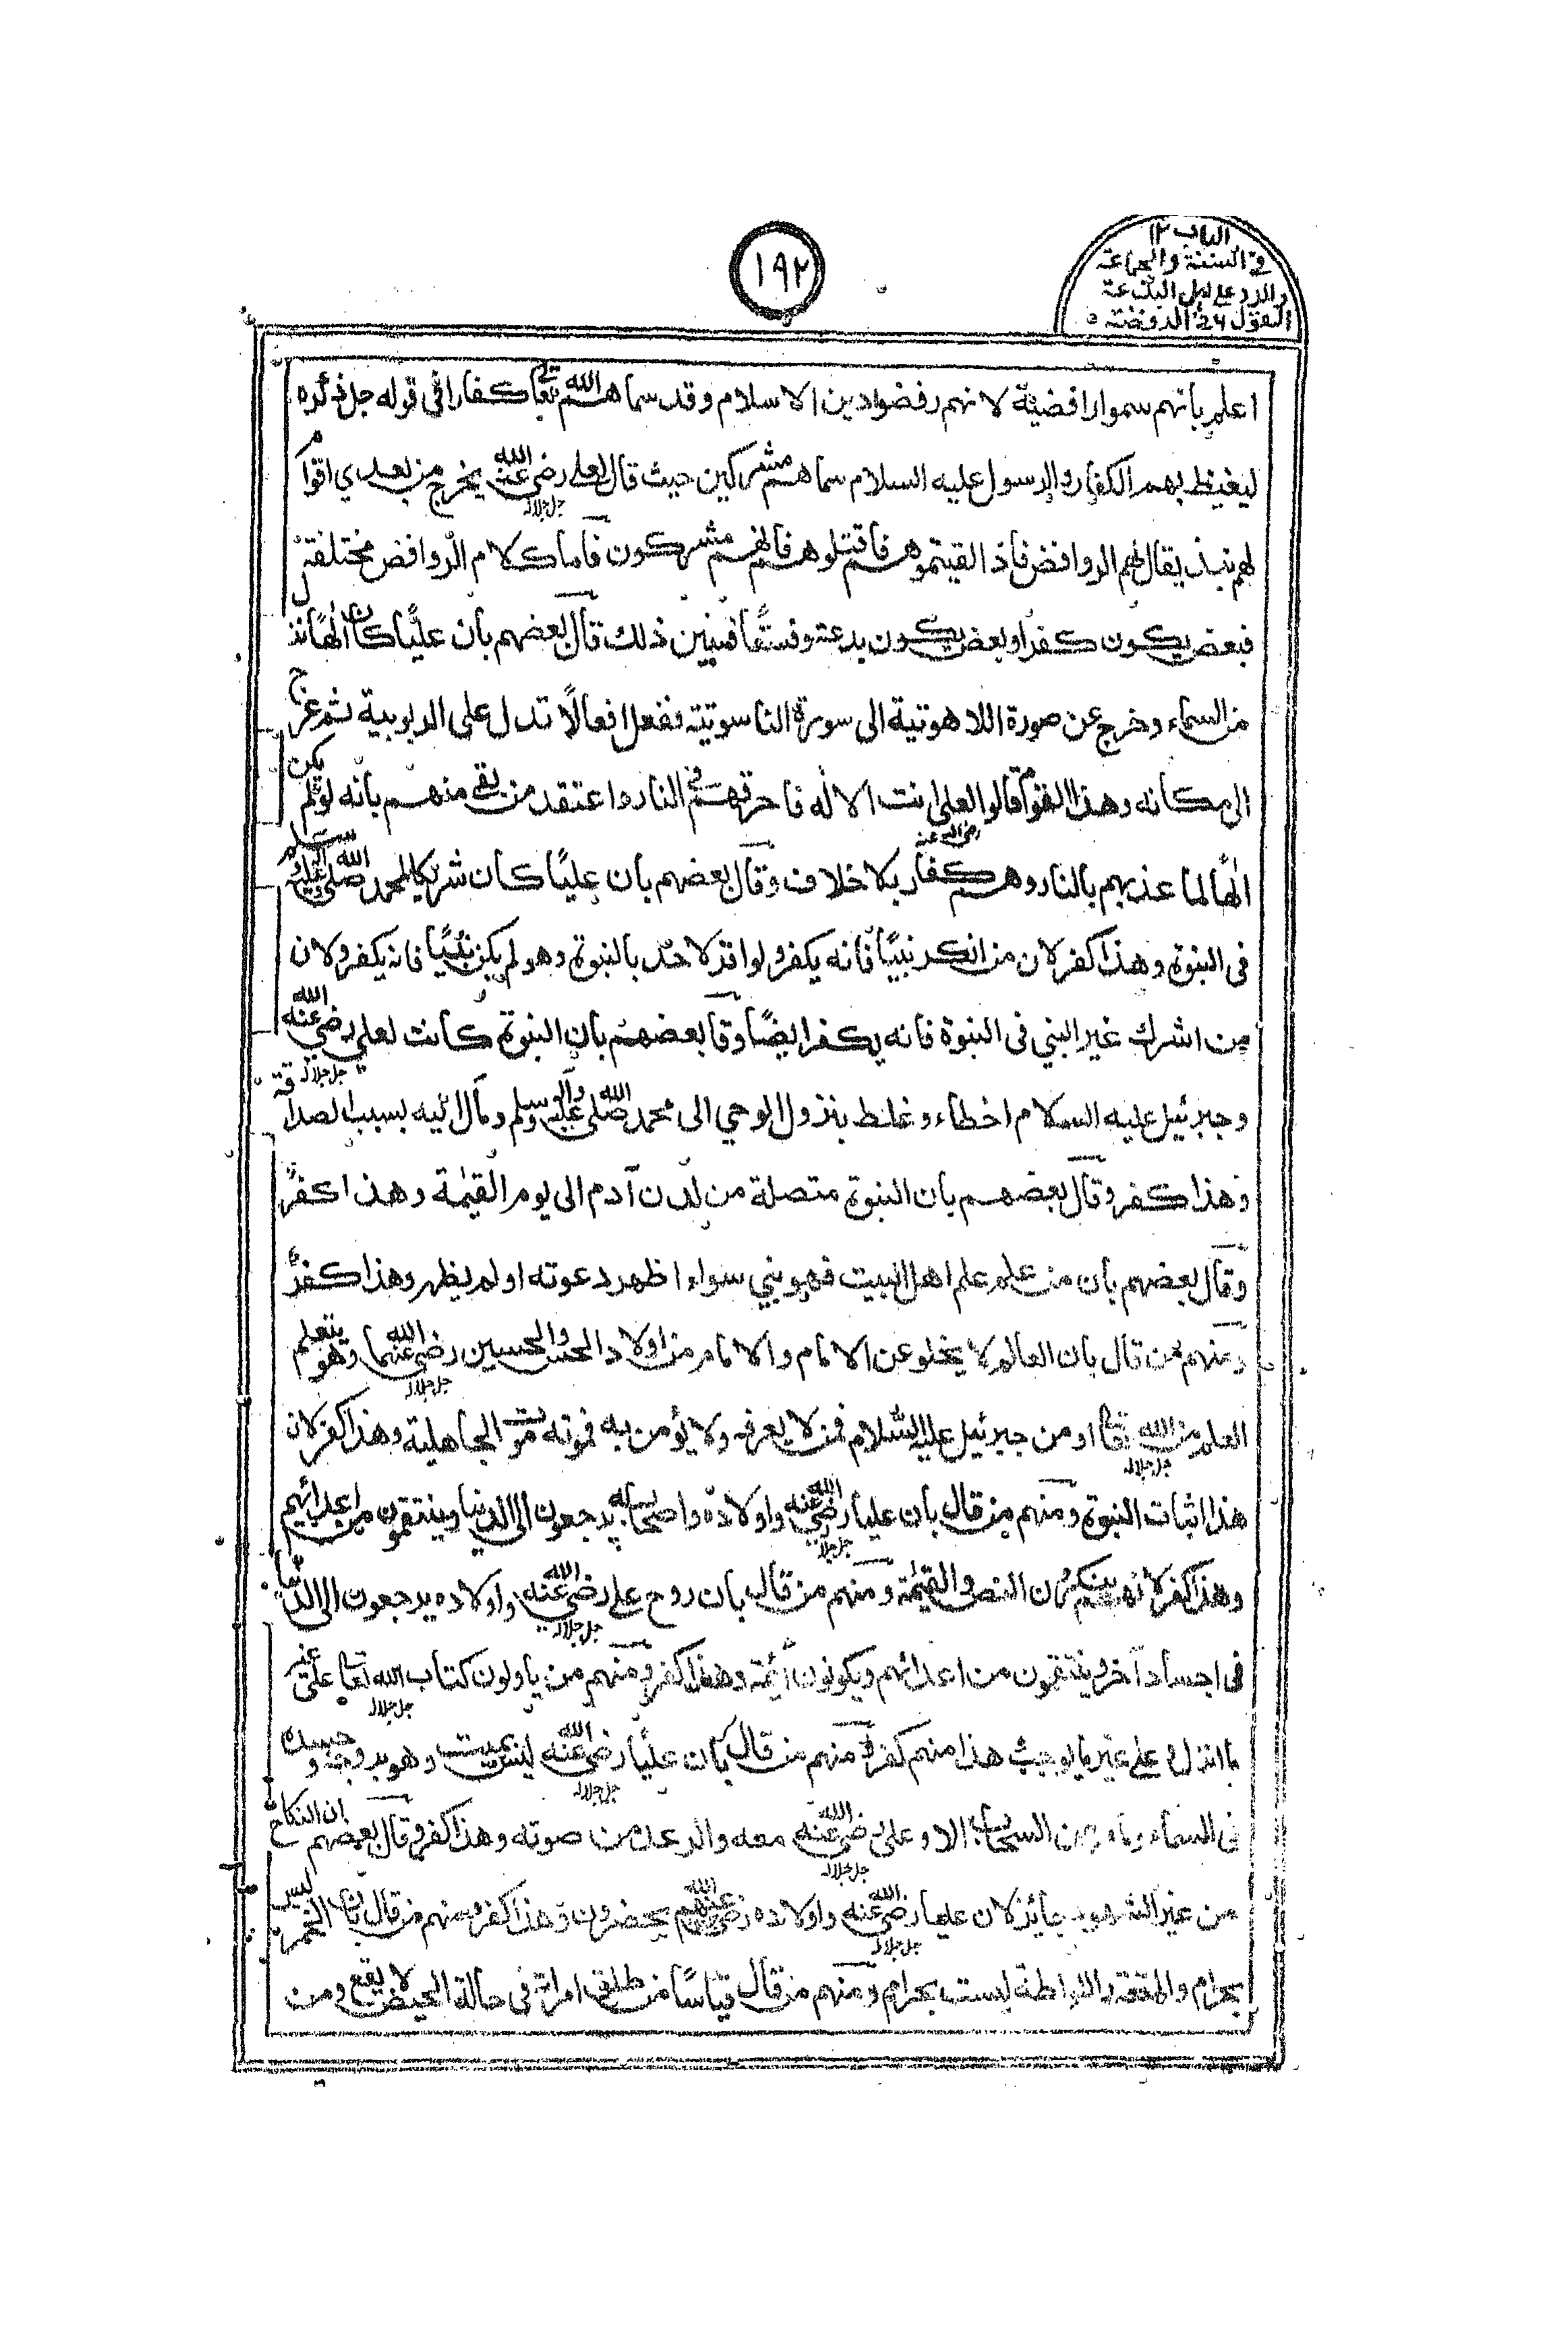 ١٩٢
الباب ١٢
في السنة والجماعة
والرد على اهل البدعة
القول 24 الروفضة
اعلم بانهم سموا رافضيّة لانهم رفضوا دين الاسلام وقد سماهم الله تعا كفارا في قوله جل ذكره
ليغيظ بهم الكفار والرسول عليه السلام سماهم مشركين حيث قال لعلي رضي الله عنه يخرج من بعدي اقوام
لهم نبذ يقال لهم الروافض فاذ القيتموهم فاقتلوهم فانهم مشركون فاما كلام الروافض مختلفة
فبعض يكون كفرًا وبعض يكون بدعة وفسقًا فنبين ذلك قال بعضهم بان عليًّا كان الٰهًا نزل
من السماء وخرج عن صورة اللاهوتية الى سورة الناسوتية ففعل افعالًا تدل على الربوبية ثم عرج
الى مكانه وهذا القوم قالوا لعلي انت الا لٰه فاحرقهم في النار واعتقد من بقي منهم بانه لو لم يكن
الٰهًا لما عذبهم بالنار وهم كفار بلا خلاف وقال بعضهم بان عليًا كان شريكا لمحمد صلى الله عليه وآله وسلم
رضي الله عنه
في النبوة وهذا كفر لان من انكر نبيًّا فانه يكفر ولو اقر لاحد بالنبوة وهو لم يكن نبيًّا فانه يكفر ولان
من اشرك غير النبي في النبوة فانه يكفر ايضًا وقا بعضهم بان النبوة كانت لعلي رضي الله عنه
جل جلاله
وجبرئيل عليه السلام اخطاء وغلط بنزول الوحي الى محمد صلى الله عليه وآله وسلم ومال اليه بسبب الصداقة
وهذا كفر وقال بعضهم بان النبوة متصلة من لدن آدم الى يوم القيٰمة وهذا كفرً
وقال بعضهم بان من علم علم اهل البيت فهو نبي سواء اظهر دعوته اولم يظهر وهذا كفرً
ومنهم من قال بان العالم لا يخلو عن الامام والامام من اولاد الحسن والحسين رضي الله عنهما وهو يتعلم
جل جلاله
العلم من الله تعا او من جبرئيل عليه السلام فمن لا يعرفه ولا يؤمن به فموته موت الجاهلية وهذا كفر لان
جل جلاله
هذا اثبات النبوة ومنهم من قال بان عليا رضي الله عنه واولاده واصحابه يرجعون الى الدنيا وينتقمون من اعدائهم
جل جلاله
وهذا كفر لانهم ينكرون النص والقيٰمة ومنهم من قال بان روح علي رضي الله عنه واولاده يرجعون الى الدنيا
جل جلاله
في اجساد آخر وينتقمون من اعدائهم ويكونون أئمة وهذا كفر ومنهم من ياولون كتاب الله تعا على غير
جل جلاله
ما انزل وعلى غير ما يوجب هذا منهم كفر ومنهم من قال بان عليًا رضي الله عنه ليس بميت وهو بروحه وجسده
جل جلاله
في السماء وما من السحاب الا وعلي رضي الله عنه معه والرعد من صوته وهذا كفر وقال بعضهم ان النكاح
جل جلاله
من غير الشهود جائز لان عليا رضي الله عنه واولاده رضي الله عنهم يحضرون وهذا كفر ومنهم من قال بان الخمر ليس
جل جلاله
بحرام والمتعة واللواطة ليست بحرام ومنهم من قال قياسًا من طلق امراة في حالة الحيض لا يقع ومن